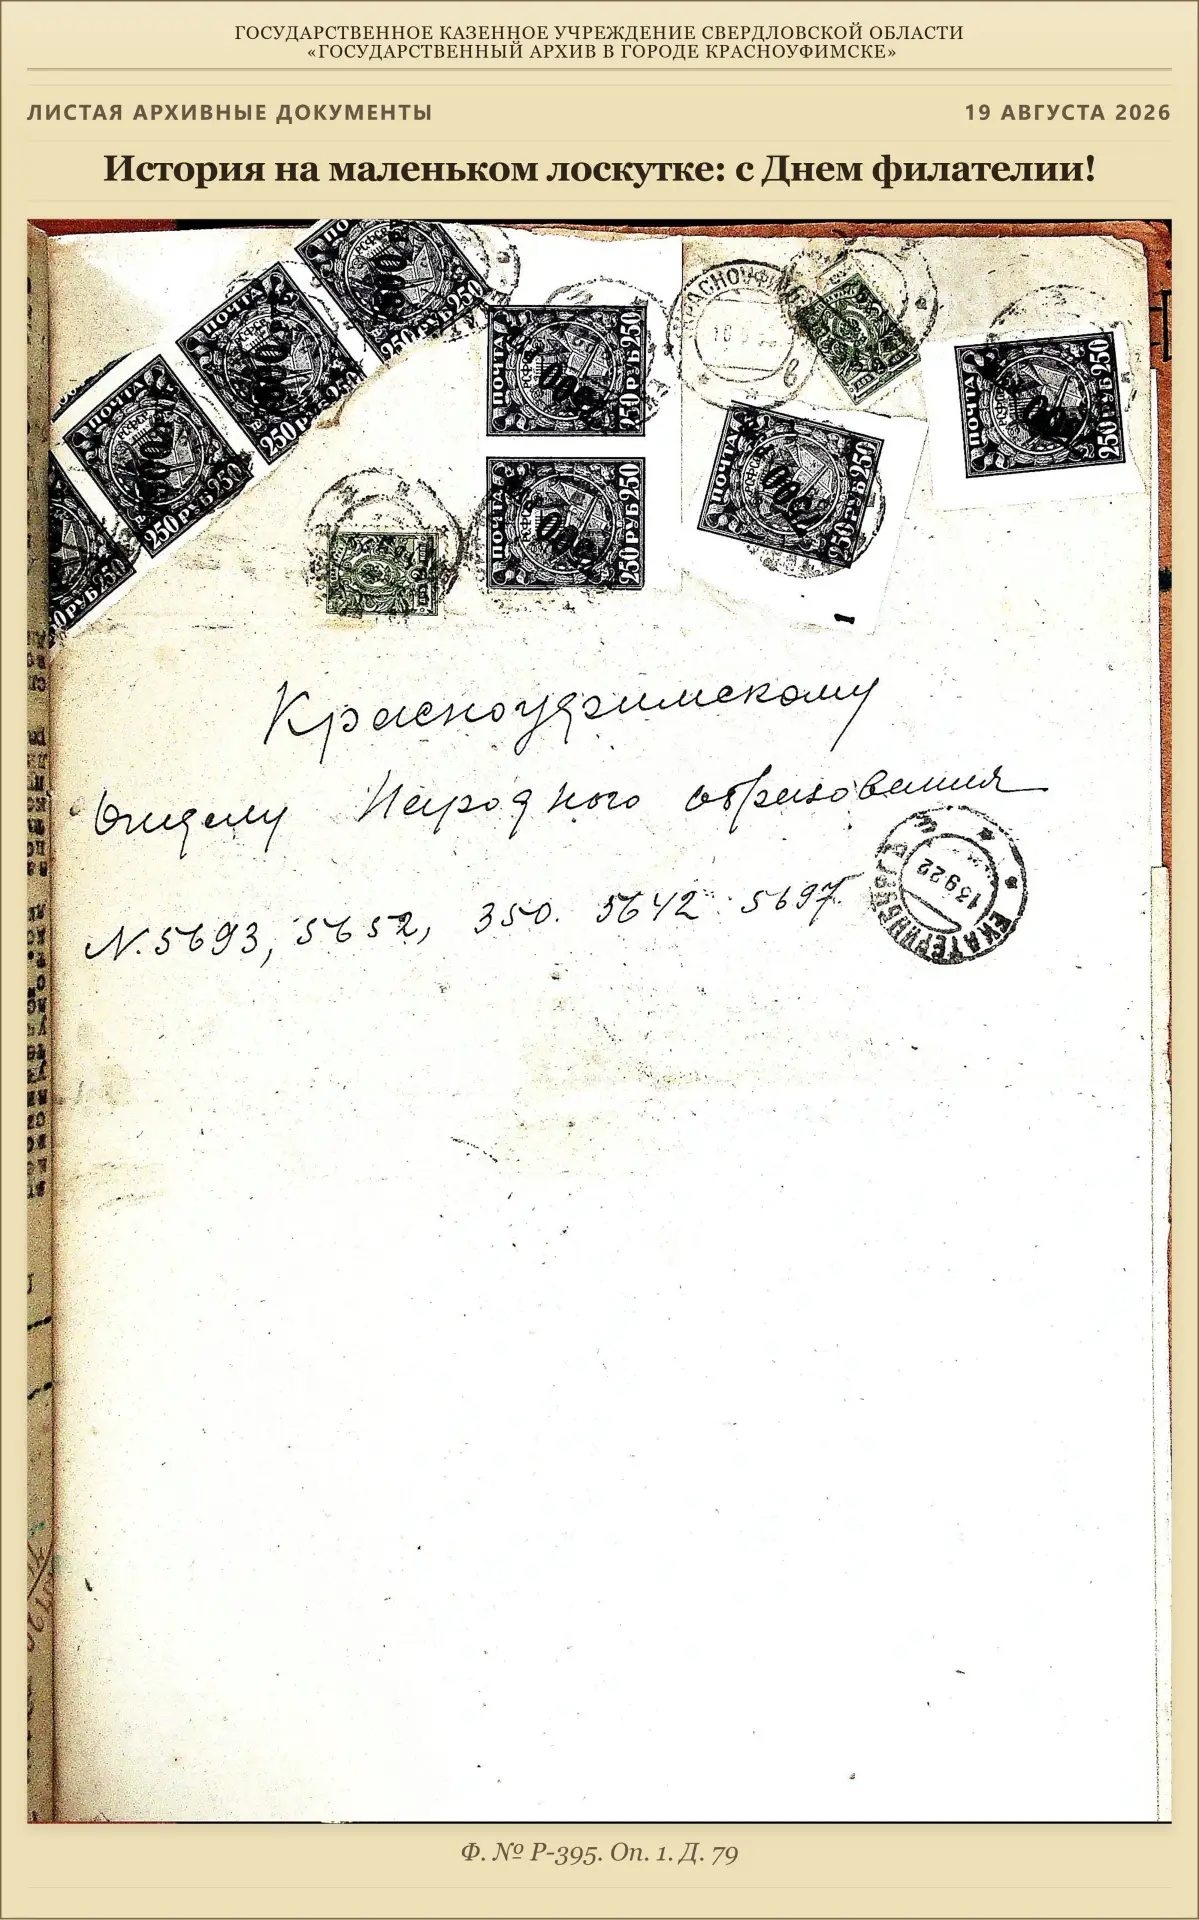 ГОСУДАРСТВЕННОЕ КАЗЕННОЕ УЧРЕЖДЕНИЕ СВЕРДЛОВСКОЙ ОБЛАСТИ
«ГОСУДАРСТВЕННЫЙ АРХИВ В ГОРОДЕ КРАСНОУФИМСКЕ»
ЛИСТАЯ АРХИВНЫЕ ДОКУМЕНТЫ
19 АВГУСТА 2026
История на маленьком лоскутке: с Днем филателии!
ПОЧТА
250 РУБ 250
ПОЧТА
250 РУБ 250
ПОЧТА
250 РУБ 250
РУБ 250
ПОЧТА
250 РУБ 250
ПОЧТА
250 РУБ 250
ПОЧТА
250 РУБ 250
250 РУБ 250
Красноуфимскому
Отделу Народного образования
N. 5693, 5652, 350. 5642 5697.
ЕКАТЕРИНБУРГЪ
13 9 22
Ф. № Р-395. Оп. 1. Д. 79